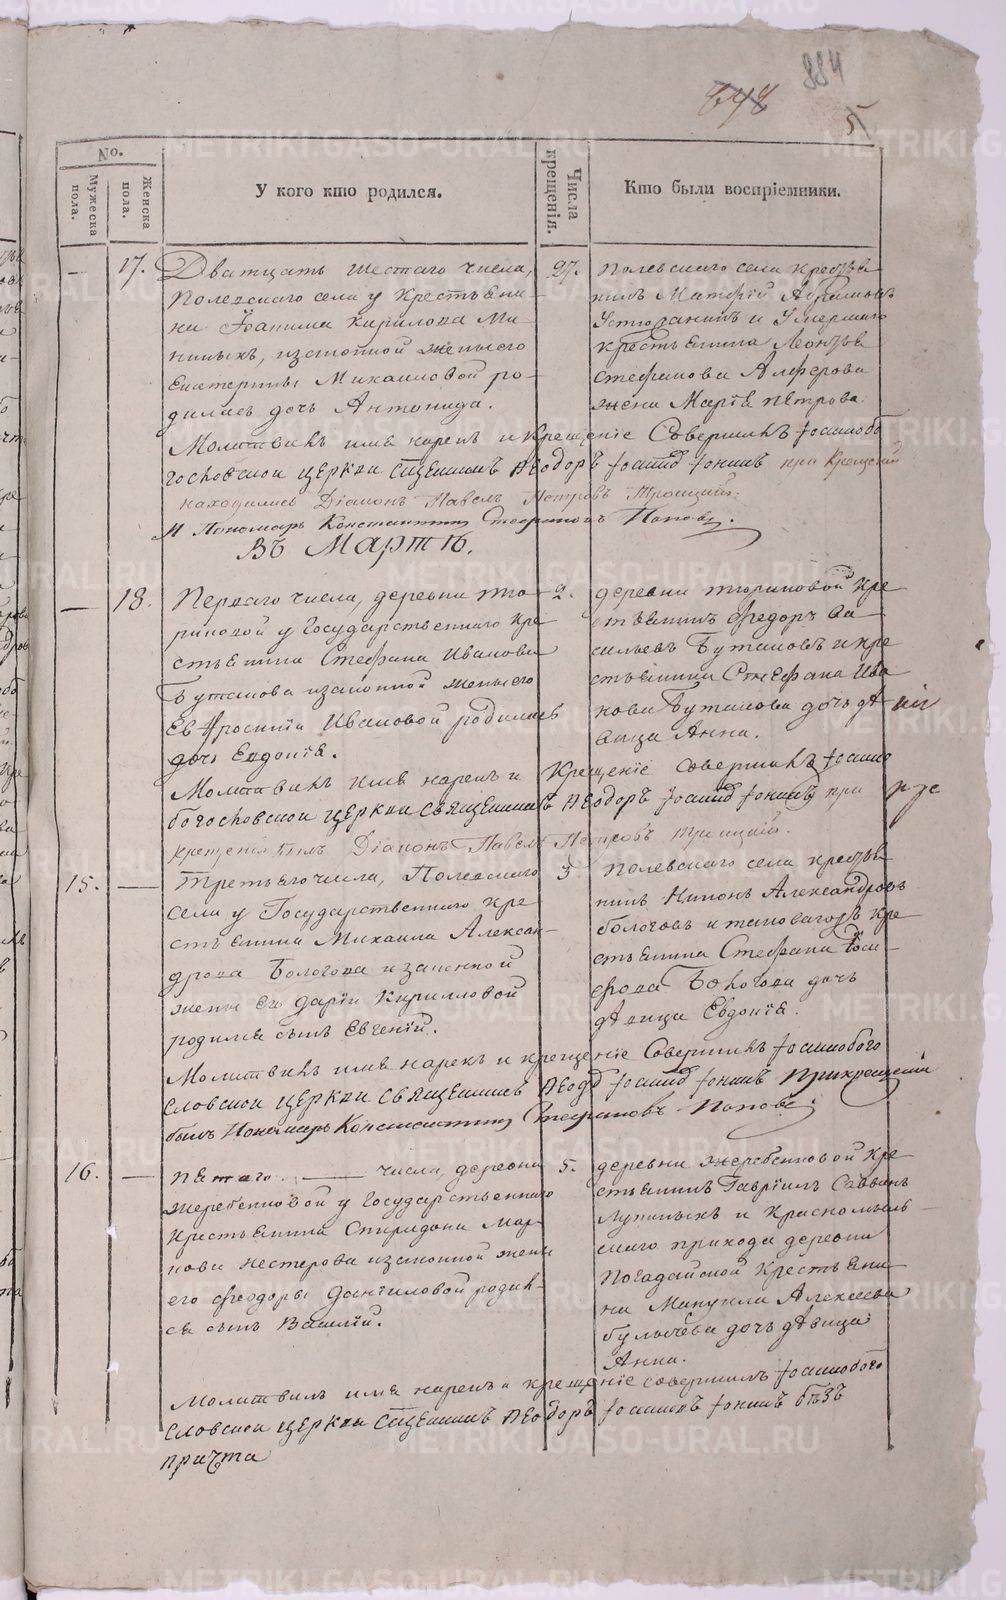 884
848
5
No.
Мужеска пола.
Женска пола.
У кого кто родился.
Числа крещенія.
Кто были воспріемники.
17.
Дватцать шестаго числа,
Полевскаго села у крестьяни-
на Іоакима Кирилова Ми-
ниныхъ, изаконной жены его
Екатерины Михаиловой ро-
дилась дочь Антонида.
27.
Полевскаго села крестья-
нинъ Матфій Абрамовъ
Устюжанинъ и Умершаго
крестьянина Леонтья
Стефанова Алферова
жена Марія петрова.
Молитвилъ имя нарекъ и Крещеніе Совершилъ Іоаннобо
гословской церкви Сщенникъ Ѳеодоръ Іоанновъ при Крещеніи
находились Діаконъ Павелъ Петровъ Троицкій.
И Пономарь Константинъ Стефановъ Поповъ.
Въ Мартѣ.
18.
Перваго числа, деревни тю-
риковой у Государственнаго кре
стьянина Стефана Иванова
Бутакова изаконной жены его
Евфросиніи Ивановой родилась
дочь Евдокія.
2.
деревни тюриковой Кре
стьянинъ Федоръ Ва
сильевъ Бутаковъ и кре
стьянина Стефана Ива
нова Бутакова дочь дѣ
вица Анна.
Молитвилъ имя нарекъ и Крещеніе совершилъ Іоанно
богословской церкви Священникъ Ѳеодоръ Іоанновъ при
крещеніи былъ Діаконъ Павелъ Петровъ троицкій.
15.
Третьяго числа, Полевскаго
села у Государственнаго кре
стьянина Михаила Алексан-
дрова Бологова изаконной
жены его Даріи Кирилловой
родился сынъ Евгеній.
3
Полевскаго села крестья
нинъ Никонъ Александровъ
бологовъ и таковагожъ кре
стьянина Стефана
Бологова дочь
дѣвица Евдокія.
Молитвилъ имя нарекъ и крещеніе Совершилъ Іоаннобого
словской церкви священникъ Ѳеодоръ Іоанновъ При крещеніи
былъ Пономарь Константинъ Стефановъ Поповъ.
16.
пятаго числа, деревни
жеребенковой у Государственнаго
Крестьянина Спиридона Мар-
кова Нестерова изаконной жены
его Феодоры Даниловой родил-
ся сынъ Василій.
5.
деревни жеребенковой Кре
стьянинъ Гавріилъ Саввинъ
Лупиныхъ и Красномыль-
скаго прихода деревни
Погадайской Крестьяни-
на Микулы Алексѣева
булычева дочь дѣвица
Анна.
Молитвилъ имя нарекъ и крещеніе совершилъ Іоаннобого
словской церкви Сщенникъ Ѳеодоръ Іоанновъ бѣзъ
причта
METRIKI.GASO-URAL.RU